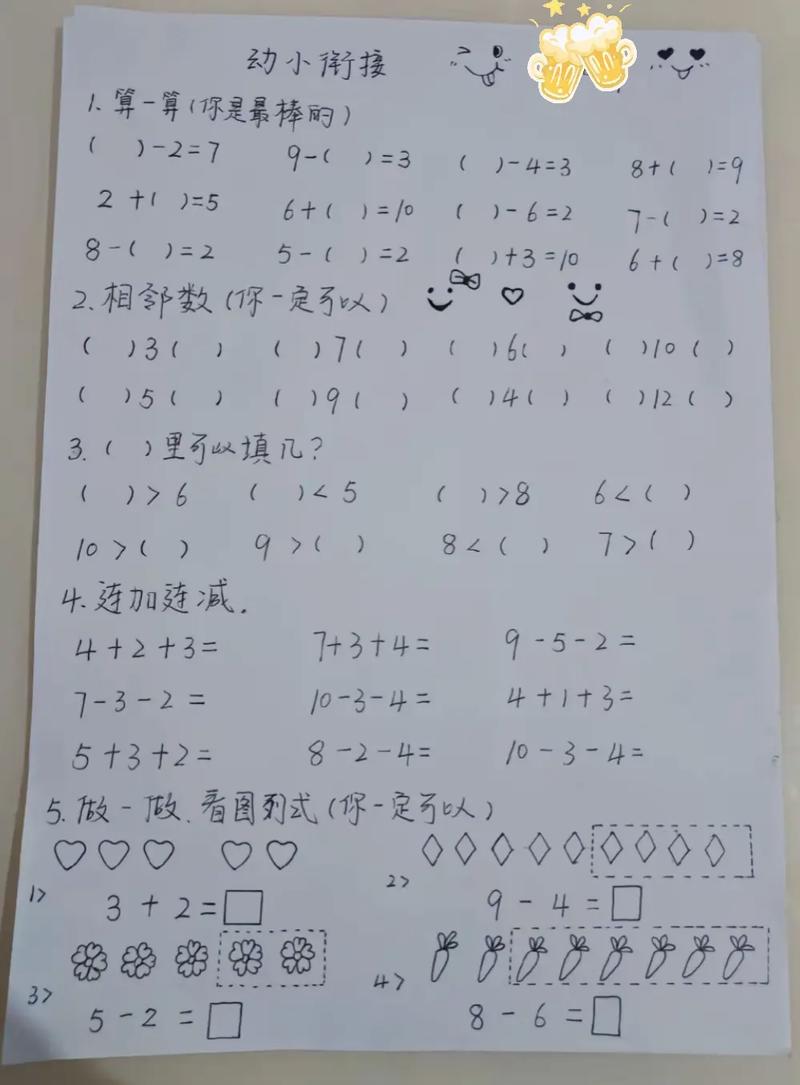 幼小衔接
1. 算一算(你是最棒的)
( )-2=7 9-( )=3 ( )-4=3 8+( )=9
2+( )=5 6+( )=10 ( )-6=2 7-( )=2
8-( )=2 5-( )=2 ( )+3=10 6+( )=8
2. 相邻数(你一定可以)
( )3( ) ( )7( ) ( )6( ) ( )10( )
( )5( ) ( )9( ) ( )4( ) ( )12( )
3. ( )里可以填几?
( )>6 ( )<5 ( )>8 6<( )
10>( ) 9>( ) 8<( ) 7>( )
4. 连加连减.
4+2+3= 7+3+4= 9-5-2=
7-3-2= 10-3-4= 4+1+3=
5+3+2= 8-2-4= 10-3-4=
5. 做一做、看图列式(你一定可以)
1> 3+2=□ 2> 9-4=□
3> 5-2=□ 4> 8-6=□